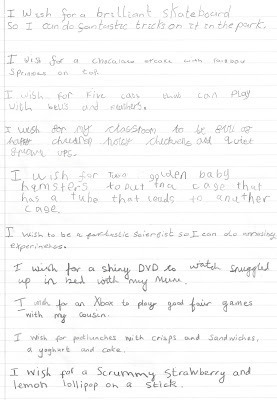 I Wish for a brilliant skateboard
So I can do fantastic tricks on it in the park.
I wish for a chocolate with rainbow
Sprinkles on
I wish for five cats that can play
with bells and
I wish for my classroom to be full of
children noisy chickens and quiet
grown ups.
I wish for two golden baby
hamsters to put in a cage that
has a tube that leads to another
cage.
I wish to be a fantastic scientist so I can do amazing
experiments.
I wish for a shiny DVD to watch snuggled
up in bed with my Mum.
I wish for an Xbox to play good fair games
with my cousin.
I wish for packlunches with crisps and sandwiches,
a yoghurt and coke.
I wish for a scrummy strawberry and
lemon lollipop on a stick.